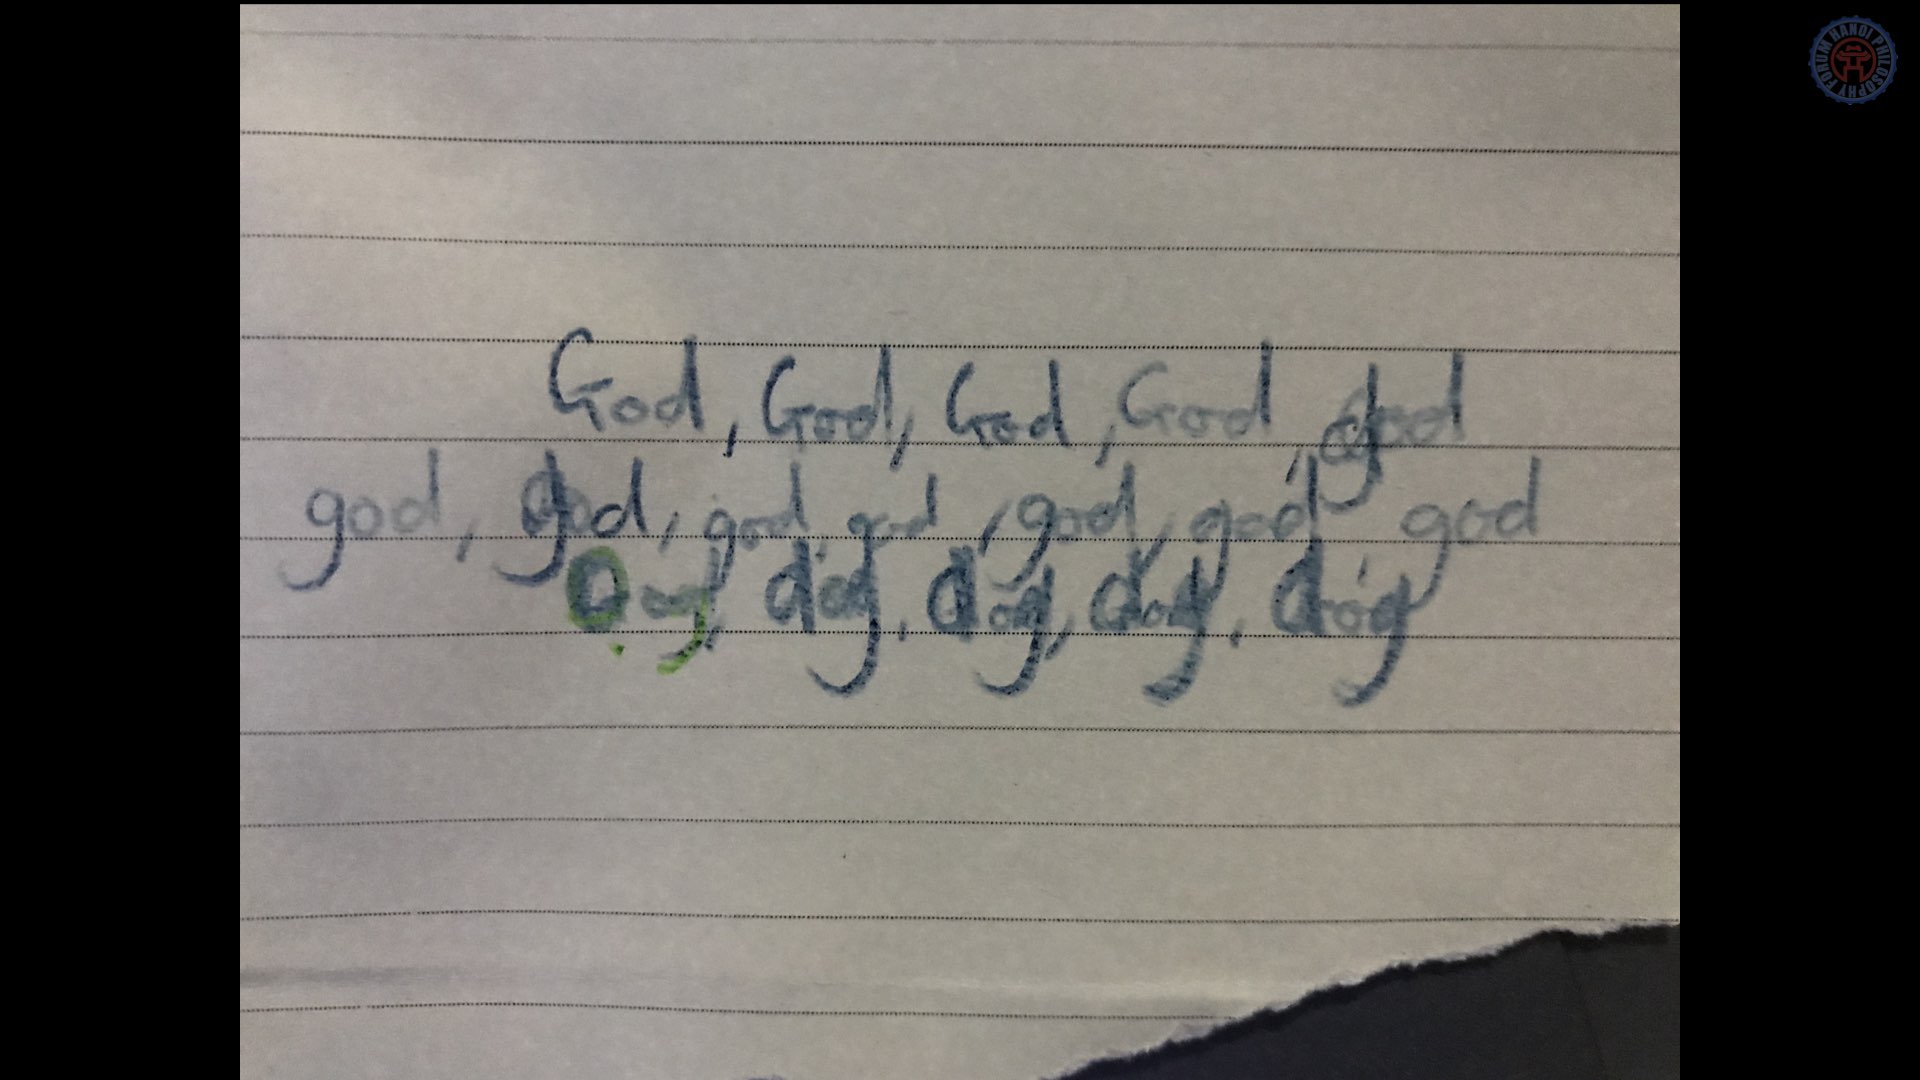 God, God, God, God, God
god, god, god, god, god, god, god
Dog, dog, dog, dog, dog
HANOI PHILOSOPHY FORUM